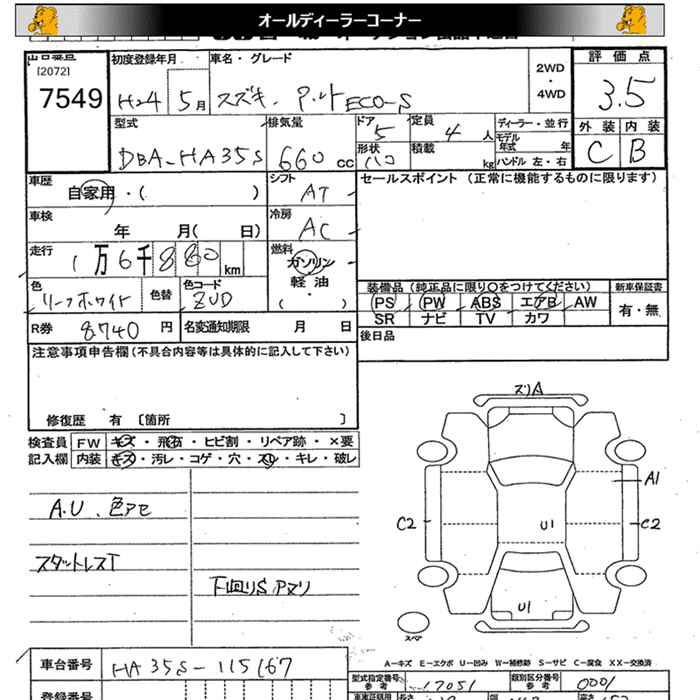 オールディーラーコーナー
出品番号 初度登録年月 車名・グレード 2WD ・ 4WD 評価点
[2072]
7549 H24 5月 スズキ. アルトECO-S 3.5
型式 排気量 ドア 定員 ディーラー・並行 外装 内装
5 4人 モデル年式 年
DBA-HA35S 660 cc 形状 積載 kg ハンドル 左・右 C B
車歴 自家用・( ) シフト AT セールスポイント (正常に機能するものに限ります)
車検 年 月( 日) 冷房 AC
走行 1万6千880km 燃料 ガソリン 軽油 ・( )
色 リーフホワイト 色替 色コード ZUD
装備品 (純正品に限り○をつけてください) 新車保証書
PS PW ABS エアB AW 有・無
SR ナビ TV カワ
R券 8740円 名変通知期限 月 日 後日品
注意事項申告欄 (不具合内容等は具体的に記入して下さい)
修復歴 有 〔箇所 〕
検査員 FW キズ・飛石・ヒビ割・リペア跡・×要
記入欄 内装 キズ・汚レ・コゲ・穴・スレ・キレ・破レ
A.U、色アセ
スタットレスT
下回りS アマリ
ズリA
A1
C2 U1 C2
U1
スペア
A-キズ E-エクボ U-凹み W-補修跡 S-サビ C-腐食 XX-交換済
車台番号 HA35S-115167
型式指定番号 参考 17051 類別区分番号 参考 0001
登録番号